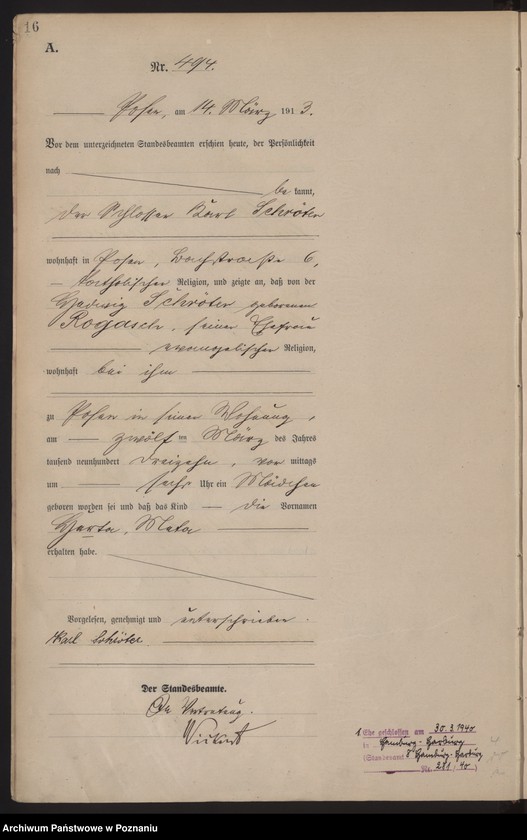 16
A.
Nr. 494.
Posen, am 14. März 1913.
Vor dem unterzeichneten Standesbeamten erschien heute, der Persönlichkeit
nach
bekannt,
der Schlosser Karl Schröter
wohnhaft in Posen, Bachstraße 6,
katholischer Religion, und zeigte an, daß von der
Hedwig Schröter geborenen
Rogasch, seiner Ehefrau
evangelischer Religion,
wohnhaft bei ihm
zu Posen in seiner Wohnung,
am zwölften März des Jahres
tausend neunhundert dreizehn, vormittags
um sechs Uhr ein Mädchen
geboren worden sei und daß das Kind die Vornamen
Herta, Meta
erhalten habe.
Vorgelesen, genehmigt und unterschrieben.
Karl Schröter
Der Standesbeamte.
In Vertretung.
1. Ehe geschlossen am 30.3.1940
in Hamburg-Harburg
(Standesamt Hamburg-Harburg
Nr. 281/40)
Archiwum Państwowe w Poznaniu